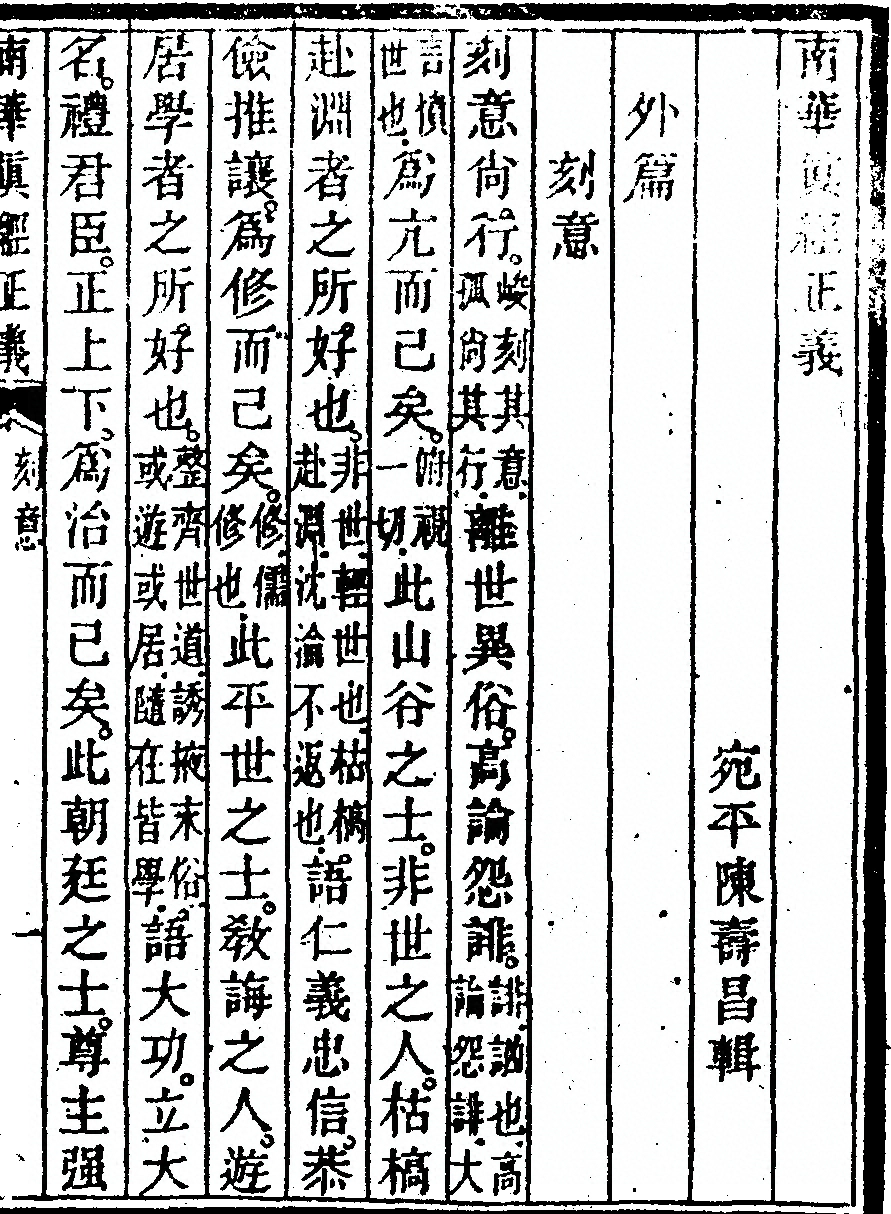 南華眞經正義
宛平陳壽昌輯
外篇
刻意
刻意尙行。峻刻其意.孤尙其行.離世異俗。高論怨誹。誹.訕也.高論怨誹.大
言憤世也.爲亢而已矣。俯視一切.此山谷之士。非世之人。枯槁
赴淵者之所好也。非世.輕世也.枯槁赴淵.沈淪不返也.語仁義忠信。恭
儉推讓。爲修而已矣。修.儒修也.此平世之士。敎誨之人。遊
居學者之所好也。整齊世道.誘掖末俗.或遊或居.隨在皆學.語大功。立大
名。禮君臣。正上下。爲治而已矣。此朝廷之士。尊主强
南華眞經正義 刻意 一